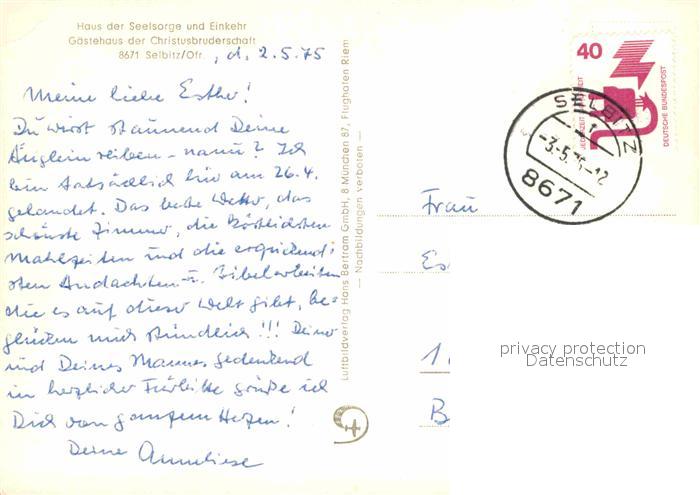 Haus der Seelsorge und Einkehr
Gästehaus der Christusbruderschaft
8671 Selbitz/Ofr. , d. 2.5.75
Meine liebe Esther!
Du wirst staunend Deine
Äuglein reiben - nanu? Ich
bin tatsächlich hier am 26.4.
gelandet. Das beste Wetter, das
schönste Zimmer, die köstlichsten
Mahlzeiten und die erquickend-
sten Andachten u. Bibelarbeiten
die es auf dieser Welt gibt, be-
glücken mich stündlich!!! Deiner
und Deines Mannes gedenkend
in herzlicher Fürbitte grüße ich
Dich von ganzem Herzen!
Deine Anneliese
Luftbildverlag Hans Bertram GmbH, 8 München 87, Flughafen Riem
— Nachbildungen verboten —
40
JEDERZEIT SICHERHEIT
DEUTSCHE BUNDESPOST
SELBITZ
-3.5.75-12
8671
Frau
Es
1.
B
privacy protection
Datenschutz